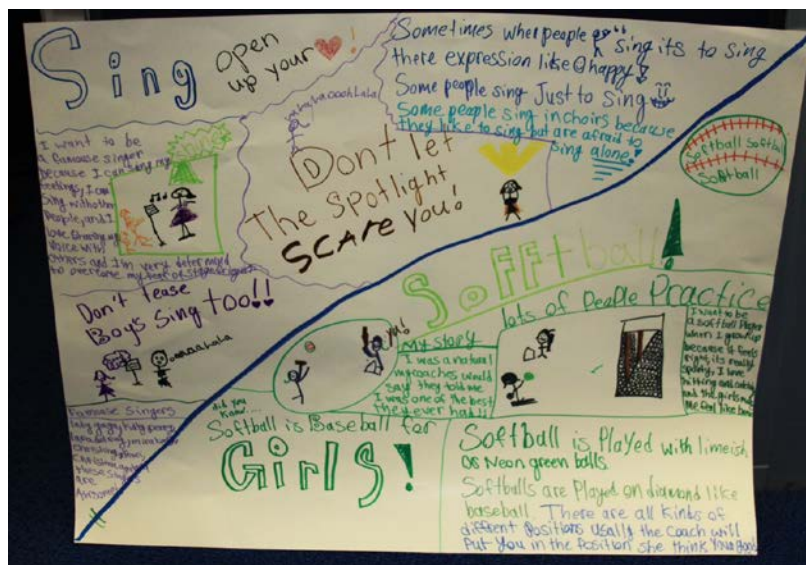 Sing
open
up your !
Sometimes when people
sing its to sing
there expression like happy
Some people sing Just to Sing
Some people sing in choirs because
they like to sing but are afraid to
sing alone
I want to be
a famouse singer
because I can sing my
feelings, I can
Sing with other
People, and I
love sharing my
Voice with
others and I'm very determed
to overcome my fear of
Dont let
The spotlight
SCARE You!
Don't tease
Boys Sing too!!
Famouse Singers
lady gaga, katy perry,
these singers
are
Softball Softball
Softball
Sofftball!
lots of People Practice
I want to be
a softball Player
when I grow up
because it feels
right, its really
sporty, I love
hitting and
and the girls
me feel like
My story
I was a natural
my coaches would
say they told me
I was one of the best
they ever had!!
did you
know...
Softball is Baseball for
Girls!
Softball is Played with limeish
or Neon green balls.
Softballs are Played on diamond like
baseball. There are all kinds of
different Positions usally the Coach will
Put You in the Position she think your good